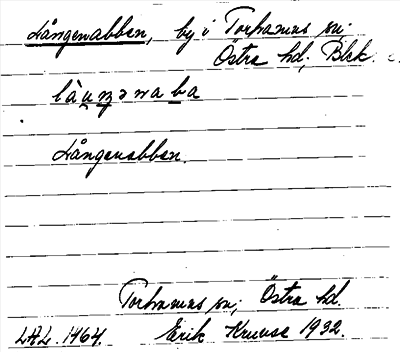 Långenabben, by i Torhamns sn;
Östra hd, Blek.
làu̯ŋənaba
Långenabben.
Torhamns sn; Östra hd.
LAL. 1464. Erik Kruuse 1932.